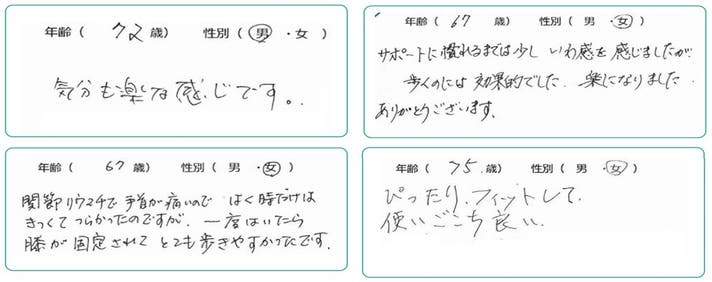 年齢（ 72 歳） 性別（ 男 ・ 女 ）
気分も楽な感じです。
年齢（ 67 歳） 性別（ 男 ・ 女 ）
サポートに慣れるまでは少し いわ感を感じましたが、
歩くのには効果的でした。楽になりました。
ありがとうございます。
年齢（ 67 歳） 性別（ 男 ・ 女 ）
関節リウマチで手首が痛いので はく時だけは
きつくてつらかったのですが、一度はいたら
膝が固定されて とても歩きやすかったです。
年齢（ 75 歳） 性別（ 男 ・ 女 ）
ぴったり、フィットして、
使いごこち良い。